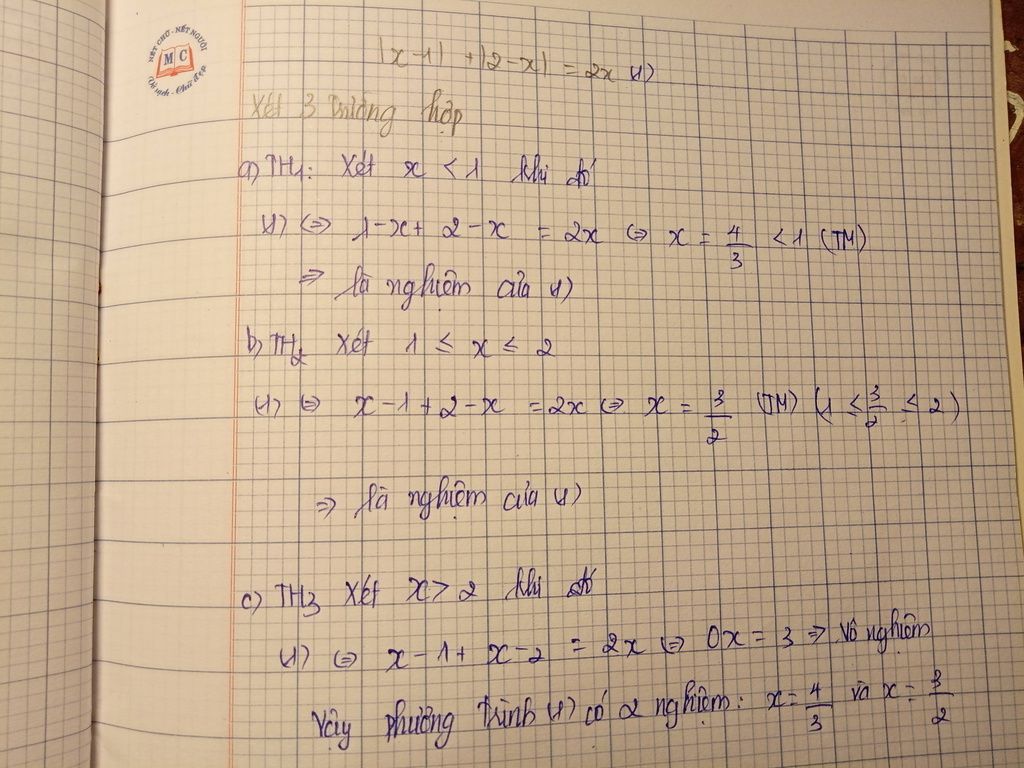 NÉT CHỮ - NẾT NGƯỜI
MC
Vở sạch - Chữ đẹp
|x-1| + |2-x| = 2x (1)
Xét 3 trường hợp
a) TH1: Xét x < 1 khi đó
(1) ⇔ 1-x+ 2-x = 2x ⇔ x = 4/3 < 1 (TM)
⇒ là nghiệm của (1)
b) TH2 Xét 1 ≤ x ≤ 2
(1) ⇔ x-1+2-x = 2x ⇔ x = 3/2 (TM) (1 ≤ 3/2 ≤ 2)
⇒ là nghiệm của (1)
c) TH3 Xét x > 2 khi đó
(1) ⇔ x-1+ x-2 = 2x ⇔ 0x = 3 ⇒ Vô nghiệm
Vậy phường trình (1) có 2 nghiệm: x = 4/3 và x = 3/2